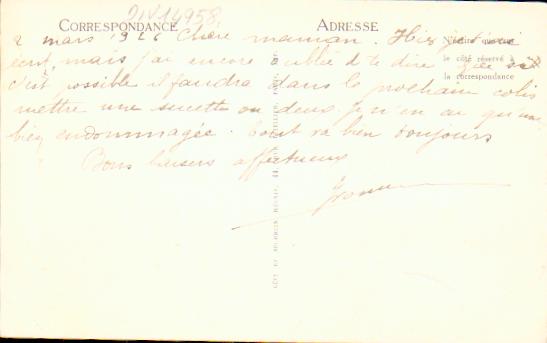 21V14958
CORRESPONDANCE
ADRESSE
N'écrire
le côté réservé à
la correspondance
2 mars 1926 Chère maman. Hier je t'ai
écrit, mais j'ai encore oublié d te dire que si
c'est possible il faudra dans le prochain colis
mettre une sucette ou deux. Je n'en ai qu'une
bien endommagée. Tout va bien toujours
Bons baisers affectueux
Yvonne